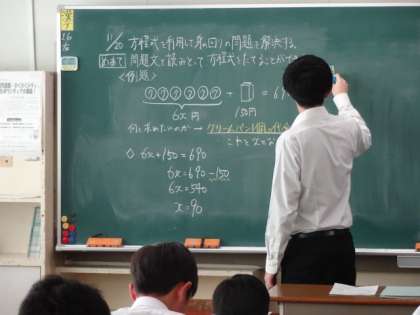 11/20 方程式を利用して身の回りの問題を解決する。
めあて 問題文を読みとって方程式をたてることがで
<例題>
+ = 69
6x円 150円
何を求めたいのか → クリームパン1個の代金
これをxとする
◇ 6x+150=690
6x=690-150
6x=540
x=90